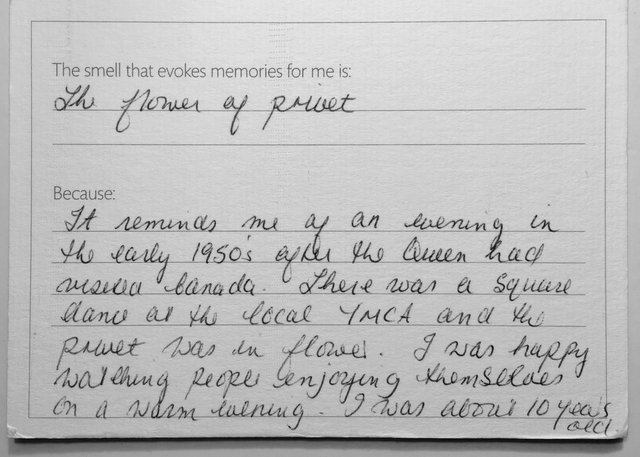 The smell that evokes memories for me is:
The flower of privet
Because:
It reminds me of an evening in
the early 1950's after the Queen had
visited Canada. There was a square
dance at the local YMCA and the
privet was in flower. I was happy
watching people enjoying themselves
on a warm evening. I was about 10 years
old.